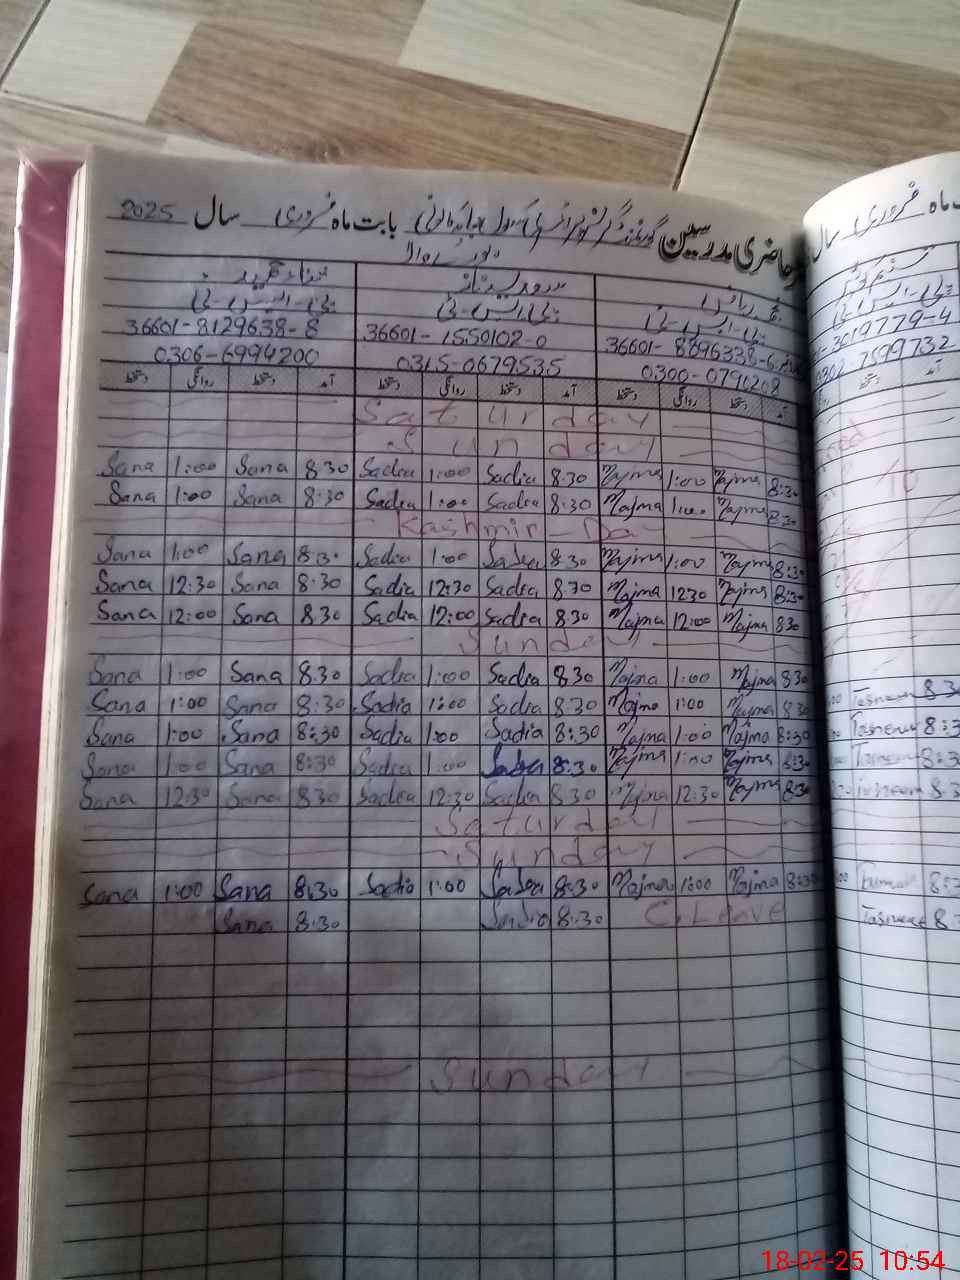 حاضری مدرسین گورنمنٹ گرلز پرائمری سکول بابت ماہ فروری سال 2025
ماہ فروری سال
بی-ایس-سی بی-ایس-سی بی-ایس-سی
36601-8129638-8 36601-1550102-0 36601-8896338-6
3019779-4
0306-6994200 0315-0679535 0300-0790208
7599732
دستخط روانگی دستخط آمد دستخط روانگی دستخط آمد دستخط روانگی دستخط آمد
Saturday
Sunday
Sana 1:00 Sana 8:30 Sadia 1:00 Sadia 8:30 Najma 1:00 Najma 8:30
Sana 1:00 Sana 8:30 Sadia 1:00 Sadia 8:30 Najma 1:00 Najma 8:30
Kashmir - Da
Sana 1:00 Sana 8:30 Sadia 1:00 Sadia 8:30 Najma 1:00 Najma 8:30
Sana 12:30 Sana 8:30 Sadia 12:30 Sadia 8:30 Najma 1230 Najma 8:30
Sana 12:00 Sana 8:30 Sadia 12:00 Sadia 8:30 Najma 12:00 Najma 830
Sunday
Sana 1:00 Sana 8:30 Sadia 1:00 Sadia 8:30 Najma 1:00 Najma 830
Sana 1:00 Sana 8:30 Sadia 1:00 Sadia 8:30 Najma 1:00 Najma 8:30 Tasneem 8:3
Sana 1:00 Sana 8:30 Sadia 1:00 Sadia 8:30 Najma 1:00 Najma 8:30 Tasneem 8:3
Sana 1:00 Sana 8:30 Sadia 1:00 Sadia 8:30 Najma 1:00 Najma 8:30 Tasneem 8:3
Sana 12:30 Sana 830 Sadia 12:30 Sadia 8:30 Najma 12:30 Najma 8:30 Tasneem 8:3
Saturday
Sunday
Sana 1:00 Sana 8:30 Sadia 1:00 Sadia 8:30 Najma 1:00 Najma 8:30 8:3
Sana 8:30 Sadia 8:30 C.Leave Tasneem 8:
Sunday
18-02-25 10:54